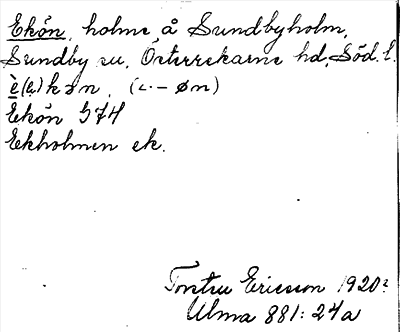 Ekön, holme å Sundbyholm,
Sundby sn, Österrekarne hd, Söd. l.
è(k)køn, (-́-øn)
Ekön 574
Ekholmen ek.
Torsten Ericsson 1920?
Ulma 881:24a